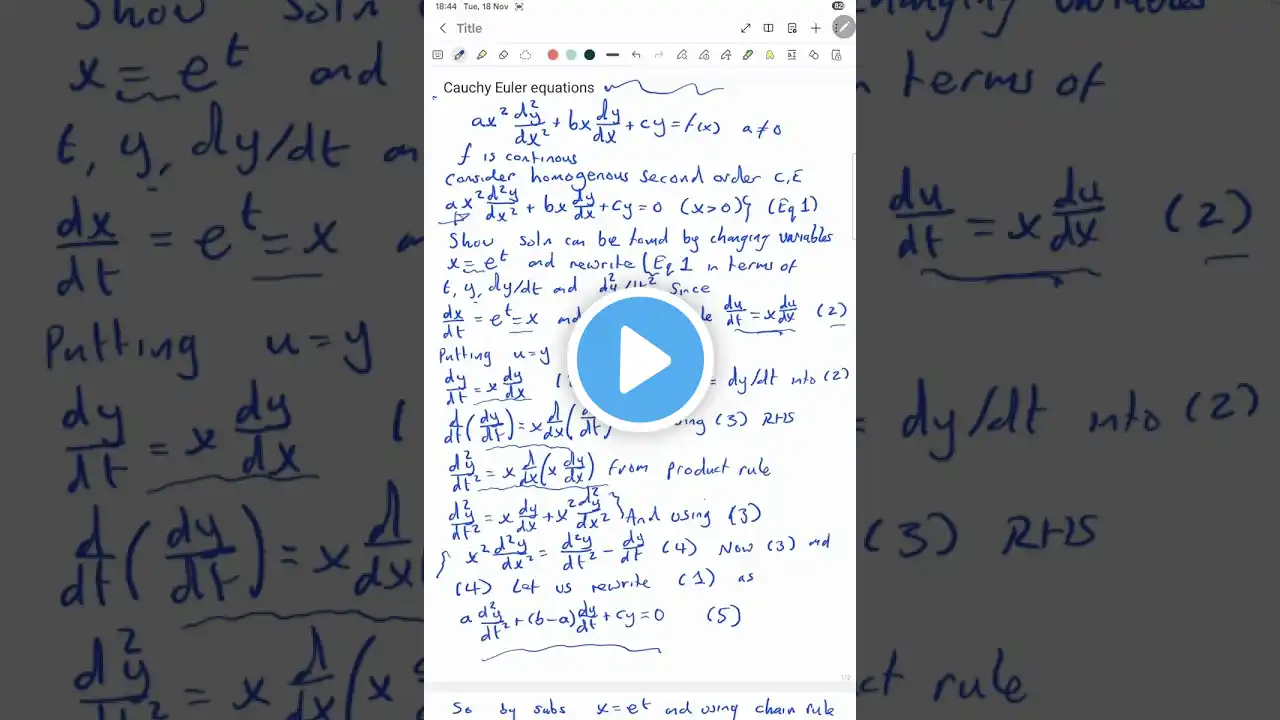 18:44 Tue, 18 Nov 82
Title
Cauchy Euler equations
ax² d²y/dx² + bx dy/dx + cy = f(x) a≠0
f is continous
Consider homogenous second order C,E
ax² d²y/dx² + bx dy/dx + cy = 0 (x>0) (Eq 1)
Show soln can be found by changing variables
x = e^t and rewrite (Eq 1 in terms of
t, y, dy/dt and d²y/dt² Since
dx/dt = e^t = x and du/dt = x du/dx (2)
Putting u = y
dy/dt = x dy/dx ( = dy/dt into (2)
d/dt(dy/dt) = x d/dx( (3) RHS
d²y/dt² = x d/dx(x dy/dx) from product rule
d²y/dt² = x dy/dx + x² d²y/dx² } And using (3)
x² d²y/dx² = d²y/dt² - dy/dt (4) Now (3) and
(4) Let us rewrite (1) as
a d²y/dt² + (b-a) dy/dt + cy = 0 (5)
1/2
So by subs x = e^t and using chain rule